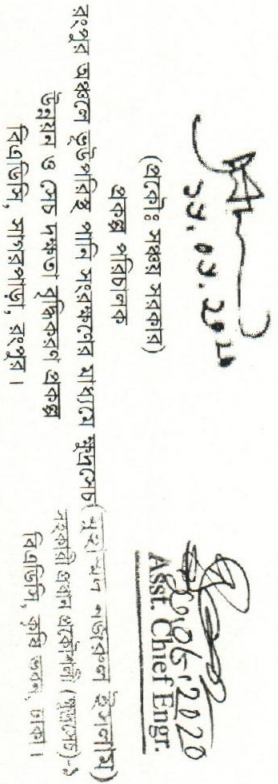 (প্রকৌঃ সঞ্চয় সরকার)
প্রকল্প পরিচালক
রংপুর অঞ্চলে ভূউপরিস্থ পানি সংরক্ষণের মাধ্যমে ক্ষুদ্রসেচ
উন্নয়ন ও সেচ দক্ষতা বৃদ্ধিকরণ প্রকল্প
বিএডিসি, সাগরপাড়া, রংপুর।
06/2020
Asst. Chief Engr.
সহকারী প্রধান প্রকৌশলী (ক্ষুদ্রসেচ)-১
বিএডিসি, কৃষি ভবন, ঢাকা।